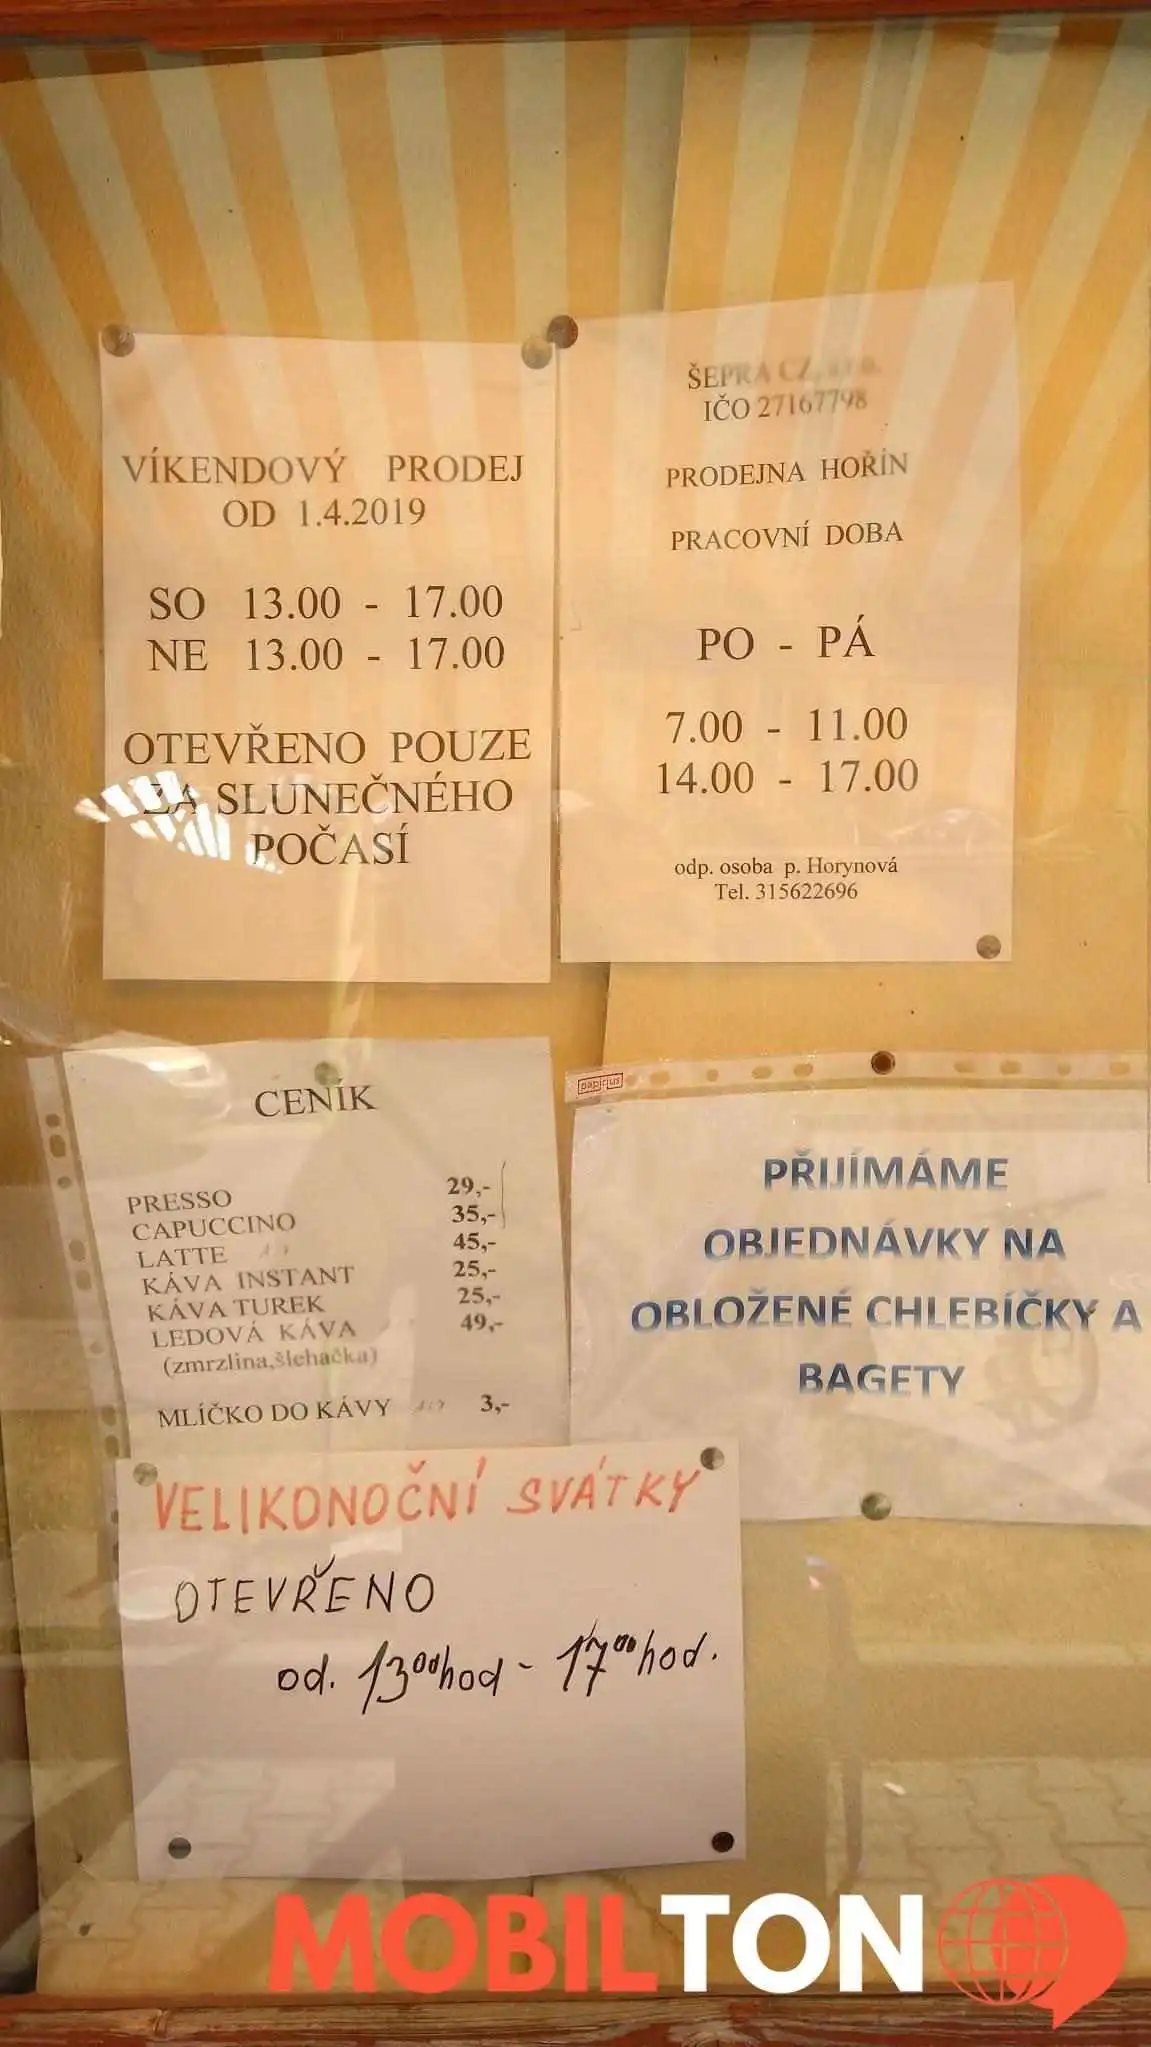 VÍKENDOVÝ PRODEJ
OD 1.4.2019
SO 13.00 - 17.00
NE 13.00 - 17.00
OTEVŘENO POUZE
ZA SLUNEČNÉHO
POČASÍ
ŠEPRA CZ, s.r.o.
IČO 27167798
PRODEJNA HOŘÍN
PRACOVNÍ DOBA
PO - PÁ
7.00 - 11.00
14.00 - 17.00
odp. osoba p. Horynová
Tel. 315622696
CENÍK
PRESSO 29,-
CAPUCCINO 35,-
LATTE 45,-
KÁVA INSTANT 25,-
KÁVA TUREK 25,-
LEDOVÁ KÁVA 49,-
(zmrzlina,šlehačka)
MLÍČKO DO KÁVY 3,-
papirius
PŘIJÍMÁME
OBJEDNÁVKY NA
OBLOŽENÉ CHLEBÍČKY A
BAGETY
VELIKONOČNÍ SVÁTKY
OTEVŘENO
od. 13⁰⁰hod - 17⁰⁰hod.
MOBILTON